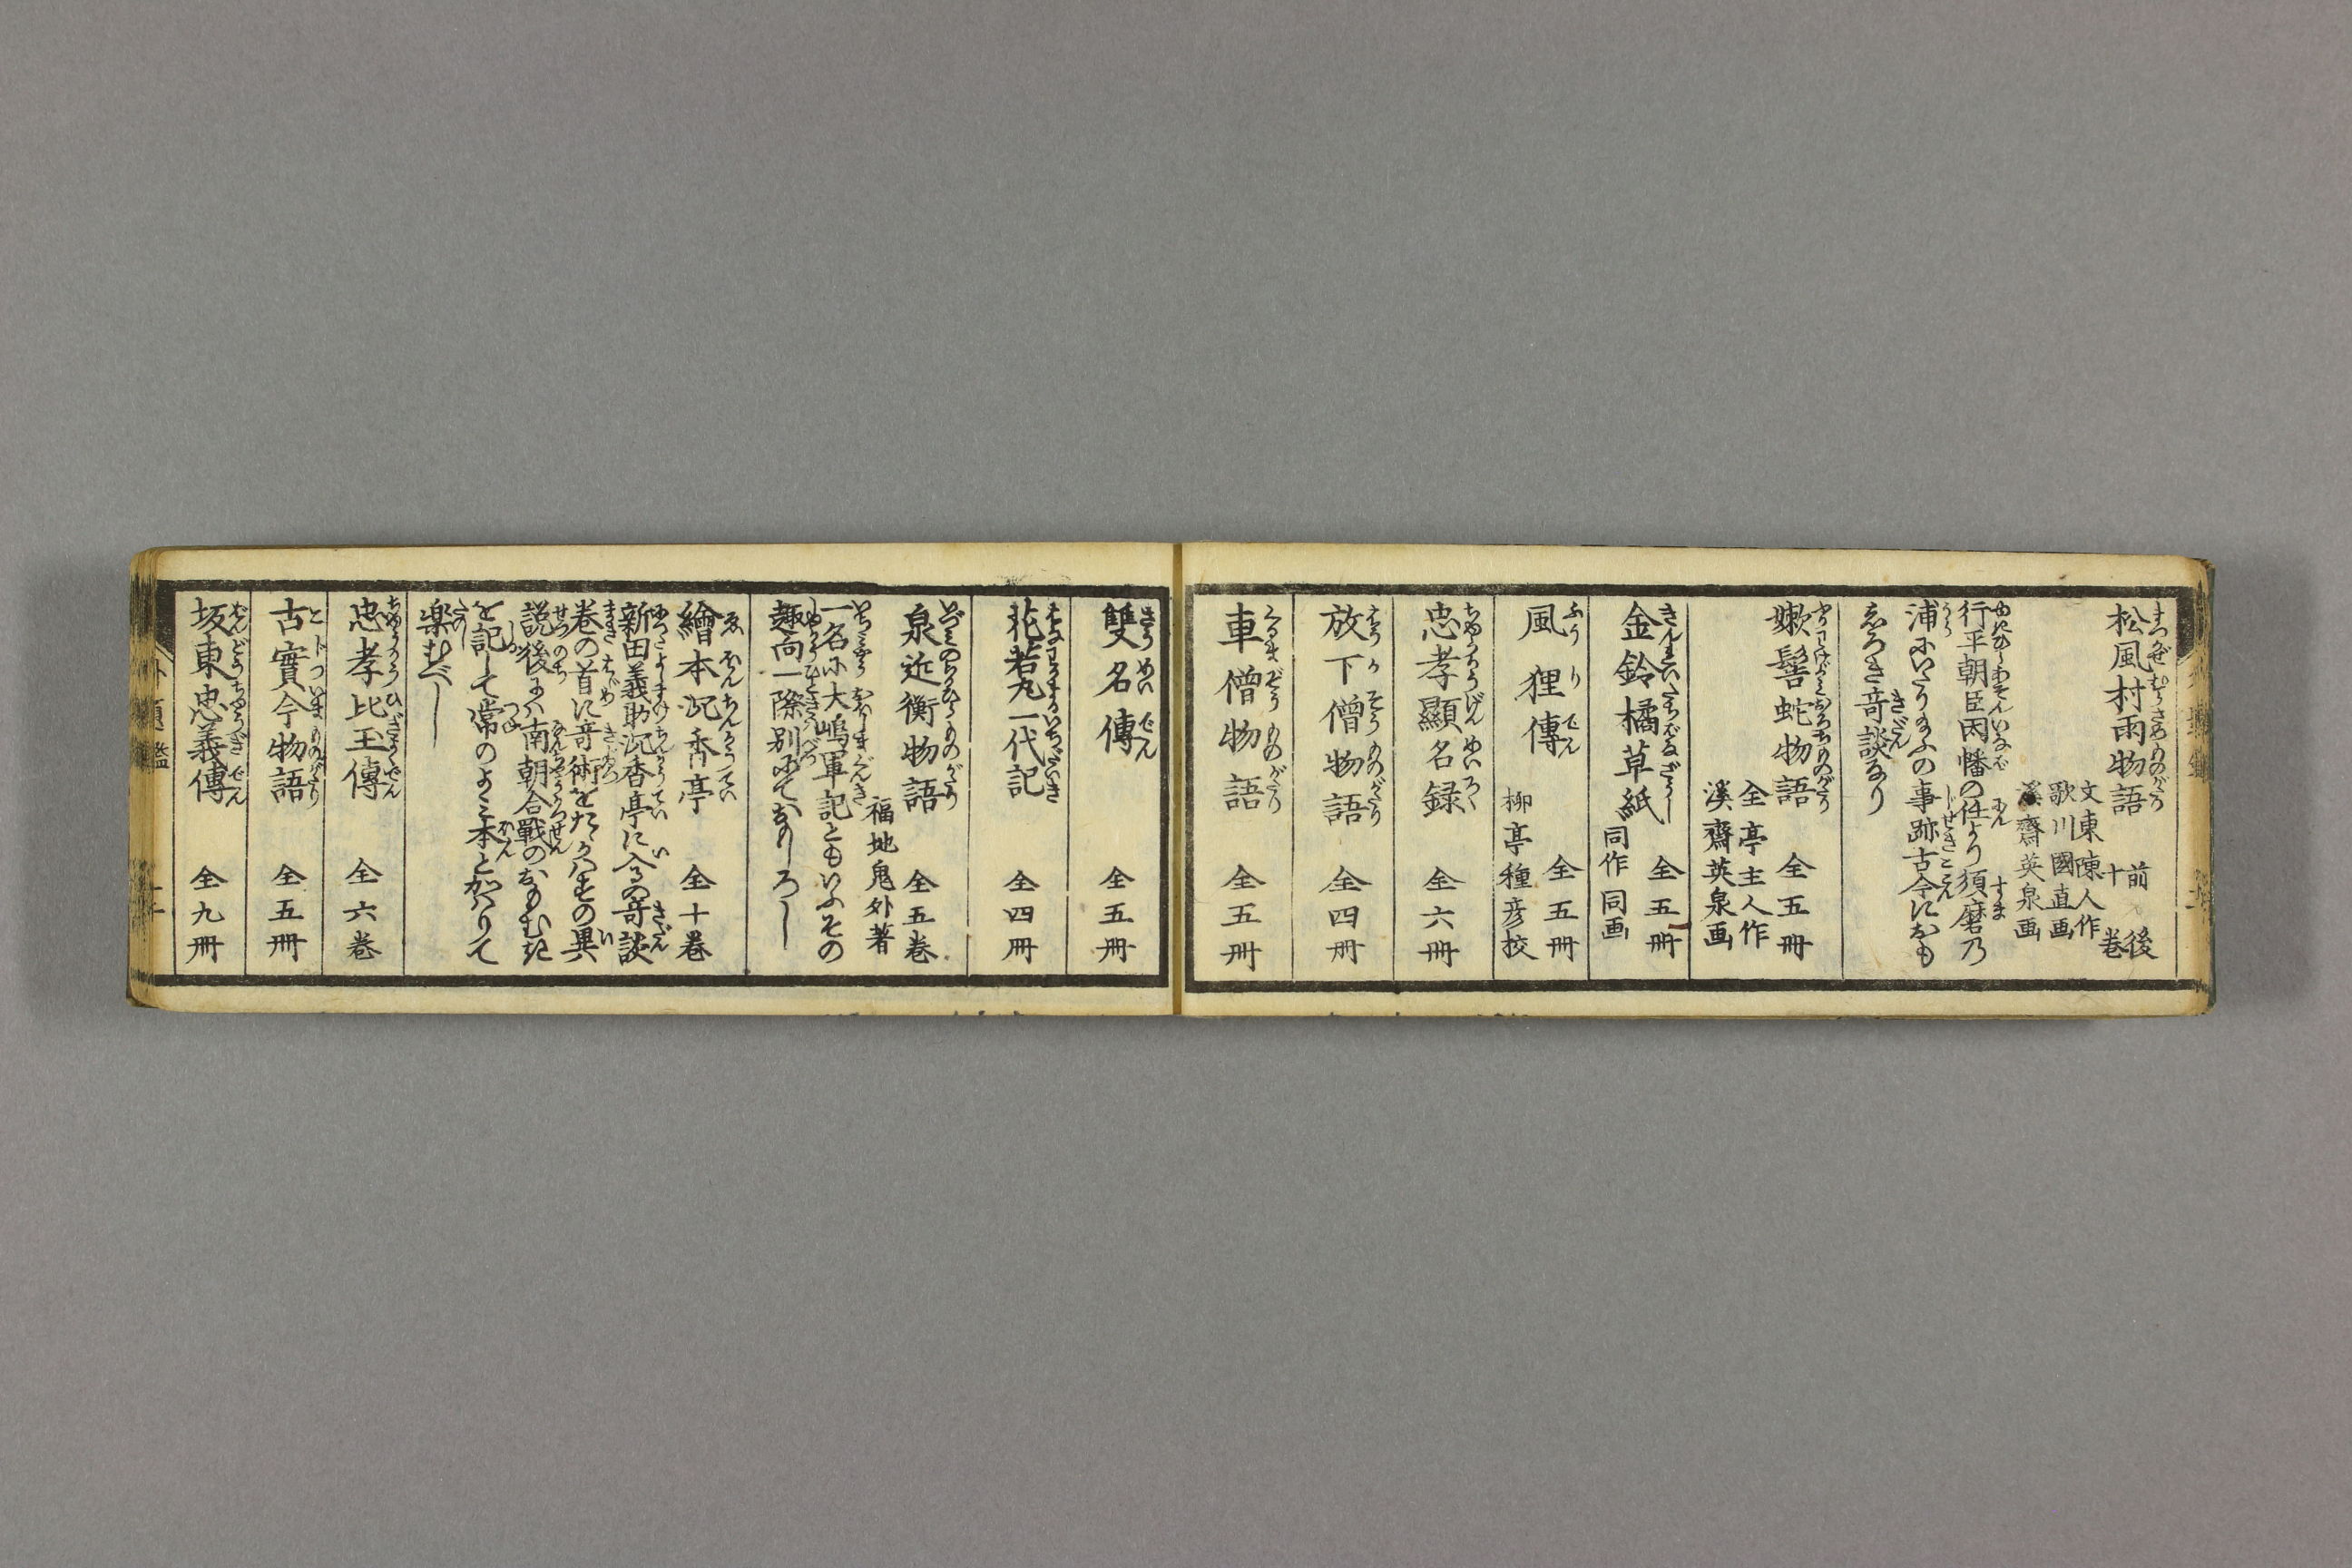 松風村雨物語 前後十巻
文東陳人作
歌川國直画
溪齋英泉画
行平朝臣因幡の任より須磨乃
浦にいたり給ふの事跡古今におも
しろき奇談なり
嫩髻蛇物語 全五冊
全亭主人作
溪齋英泉画
金鈴橘草紙 全五冊
同作 同画
風狸傳 全五冊
柳亭種彦校
忠孝顯名録 全六冊
放下僧物語 全四冊
車僧物語 全五冊
雙名傳 全五冊
花若丸一代記 全四冊
泉近衡物語 全五巻
福地鬼外著
一名ハ大嶋軍記ともいふその
趣向一際別にておもしろし
繪本沉香亭 全十巻
新田義助沉香亭に入るの奇談
巻の首に奇術をたくハへの異
説後には南朝合戰のおもむき
を記して常のよみ本とかハりて
楽むべし
忠孝比玉傳 全六巻
古實今物語 全五冊
坂東忠義傳 全九冊